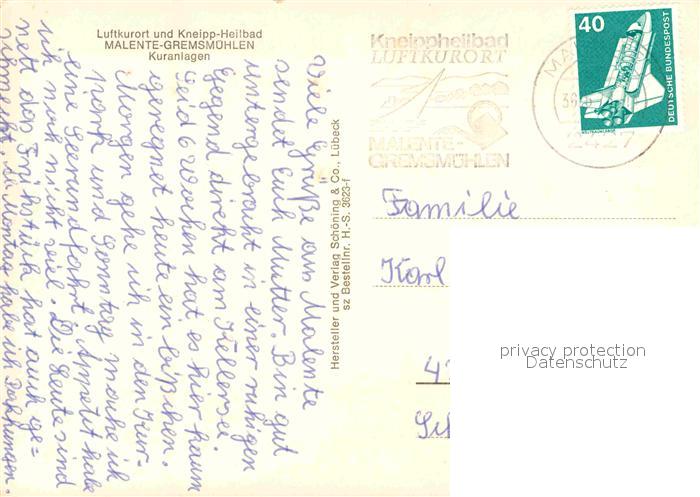 Luftkurort und Kneipp-Heilbad
MALENTE-GREMSMÜHLEN
Kuranlagen
Viele Grüße aus Malente
sendet Euch Mutter. Bin gut
untergebracht in einer ruhigen
Gegend direkt am Kellersee.
Seid 6 Wochen hat es hier kaum
geregnet heute ein bißchen.
Morgen gehe ich in den Kur-
park und Sonntag mache ich
eine Seerundfahrt, Appetit habe
ich noch nicht viel. Die Leute sind
nett das Frühstück hat auch ge=
schmeckt. Montag habe ich Packungen.
Hersteller und Verlag Schöning & Co., Lübeck
sz Bestellnr. H.-S. 3623-f
Kneippheilbad
LUFTKURORT
MALENTE-
GREMSMÜHLEN
2427
40
DEUTSCHE BUNDESPOST
WELTRAUMLABOR
Familie
Karl
privacy protection
Datenschutz